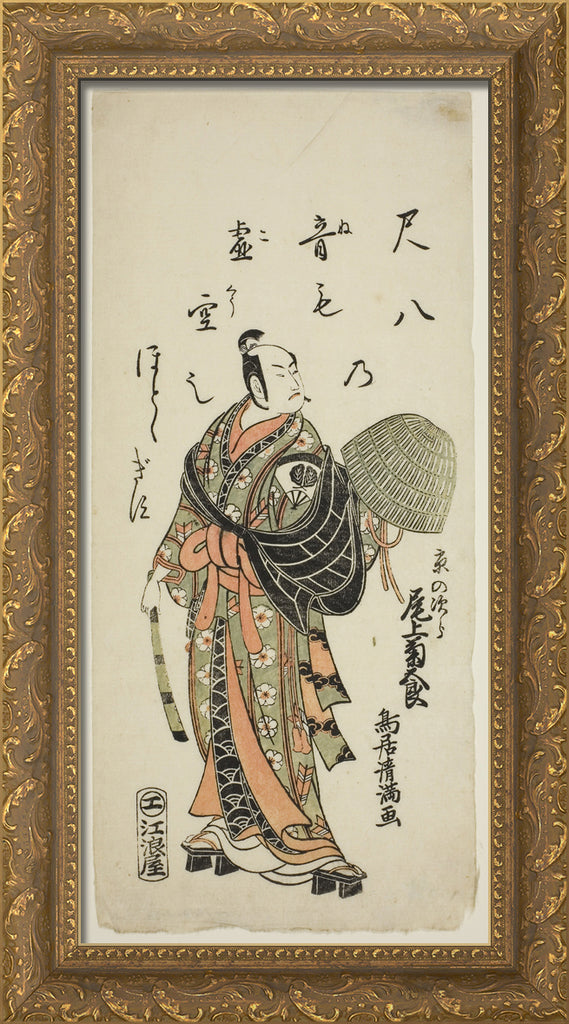 尺八
乃
音も
ね
虚空
こくう
ほとゝぎす
京の次郎
尾上菊五郎
鳥居清満画
江浪屋